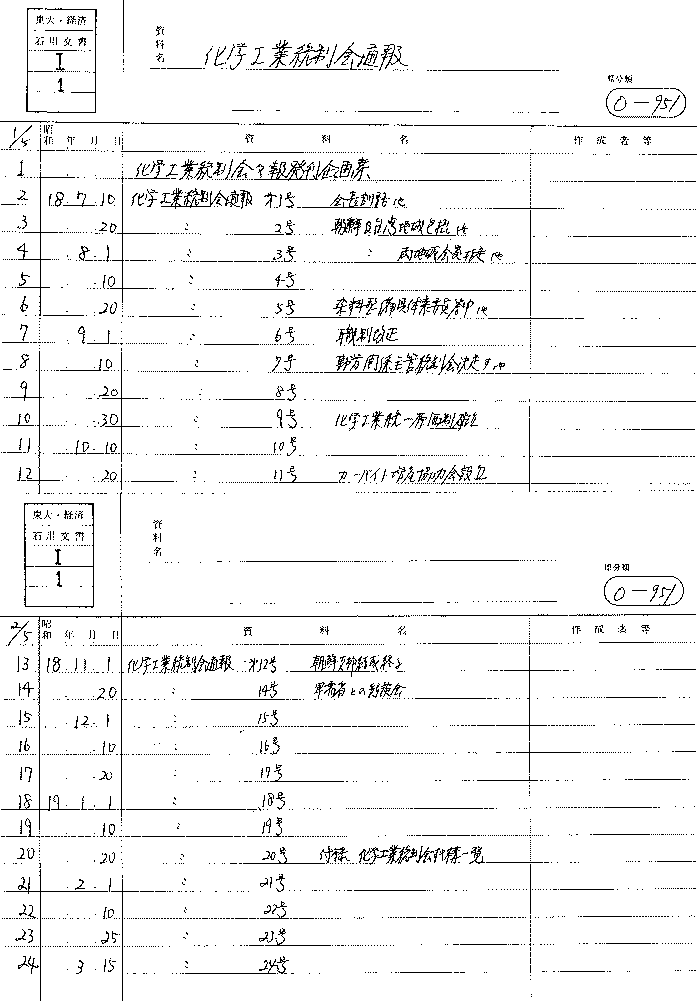 東大・経済
石川文書
I
1
資料名 化学工業統制会通報
旧分類
0-951
1/5 昭和 年 月 日 資料名 作成者等
1 化学工業統制会々報発刊企画案
2 18 7 10 化学工業統制会通報 オ1号 会長訓話 他
3 20 〃 2号 朝鮮及台湾地域包括 他
4 8 1 〃 3号 〃 両地域会員指定 他
5 10 〃 4号
6 20 〃 5号 企業整備具体案委員会中 他
7 9 1 〃 6号 職制改正
8 10 〃 7号
9 20 〃 8号
10 30 〃 9号 化学工業統一原価制確立
11 10 10 〃 10号
12 20 〃 11号 カーバイト増産協力会設立
東大・経済
石川文書
I
1
資料名
旧分類
0-951
2/5 昭和 年 月 日 資料名 作成者等
13 18 11 1 化学工業統制会通報 オ12号 朝鮮支部結成終る
14 20 〃 14号 軍需省との懇談会
15 12 1 〃 15号
16 10 〃 16号
17 20 〃 17号
18 19 1 1 〃 18号
19 10 〃 19号
20 20 〃 20号 付録 化学工業統制会機構一覧
21 2 1 〃 21号
22 10 〃 22号
23 25 〃 23号
24 3 15 〃 24号